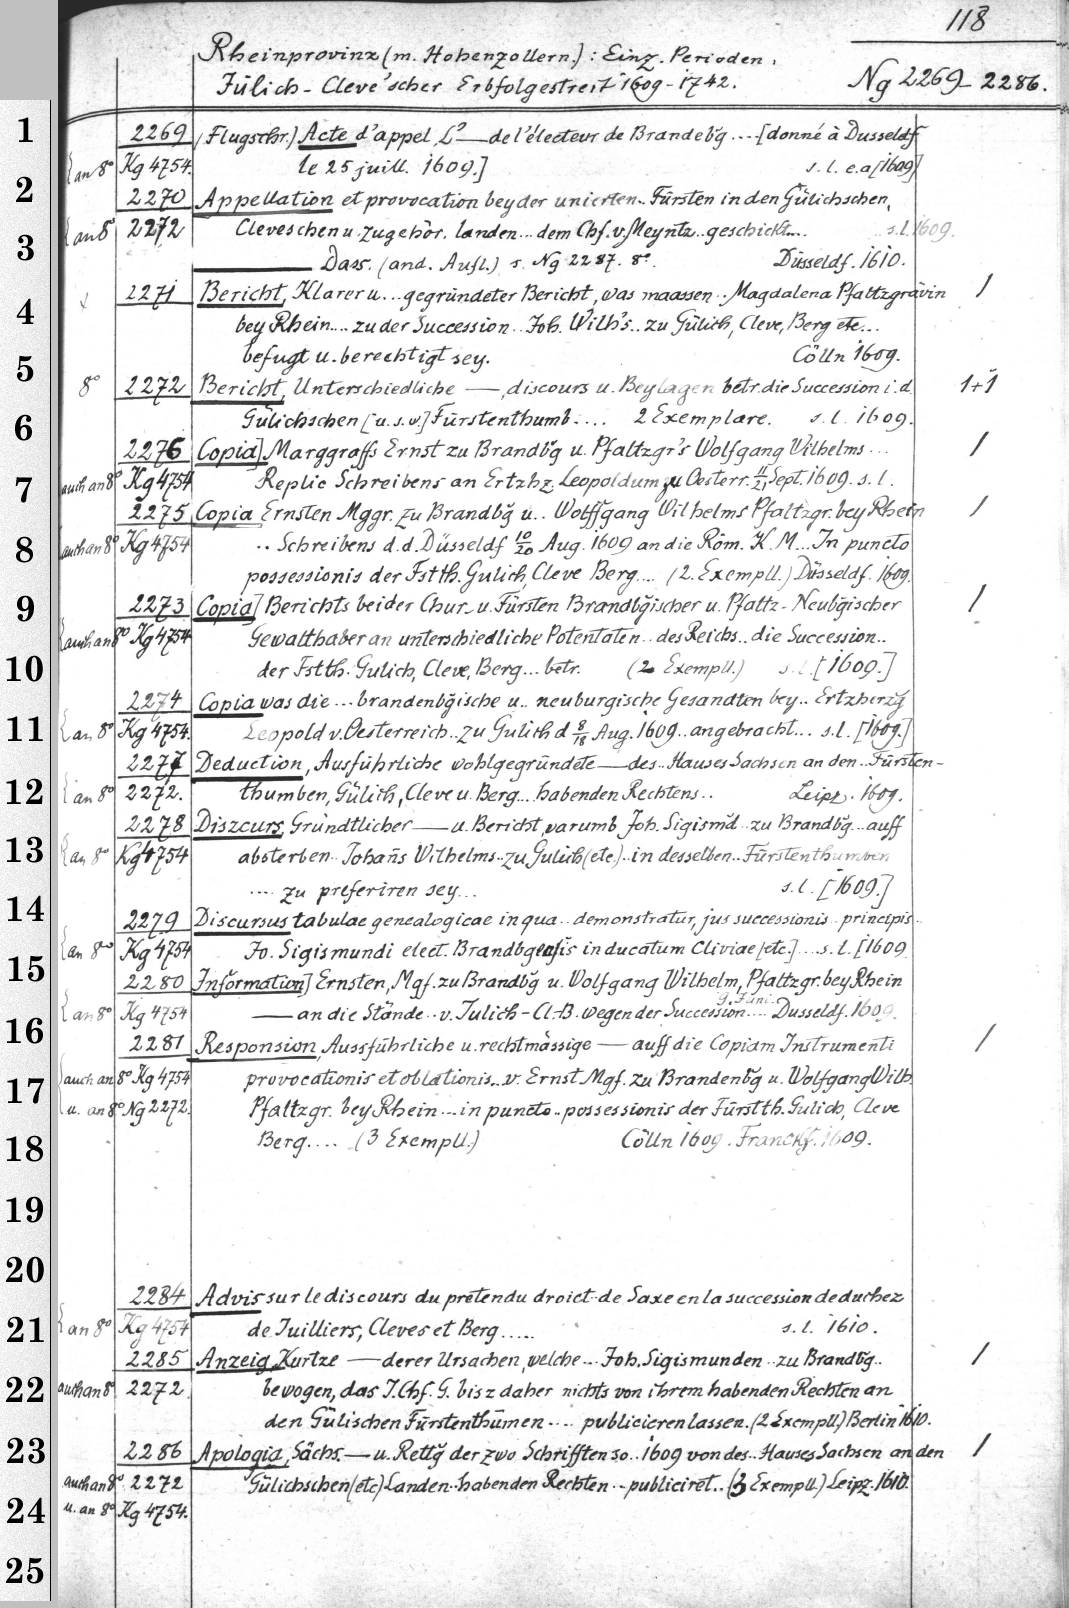 118
Rheinprovinz (m. Hohenzollern.) : Einz. Perioden.
Jülich - Cleve'scher Erbfolgestreit 1609 - 1742.
Ng 2269 - 2286.
1
2269 (Flugschr.) Acte d'appel, — de l'électeur de Brandeb'g .... [donné à Dusseldf
{an 8° Kg 4754. le 25 juill. 1609.] s. l. e. a [1609]
2
2270 Appellation et provocation beyder unierten.. Fürsten in den Gülichschen,
{an 8° 2272 Cleveschen u. zugehör. landen... dem Chf. v. Meyntz.. geschickt.... s. l. 1609.
3
——— Dass. (and. Aufl.) s. Ng 2287. 8°. Düsseldf. 1610.
2271 Bericht, Klarer u... gegründeter Bericht, was maassen.. Magdalena Pfaltzgrävin /
4
bey Rhein.... zu der Succession.. Joh. Wilh's.. zu Gülich, Cleve, Berg etc...
befugt u. berechtigt sey. Cölln 1609.
5
8° 2272 Bericht, Unterschiedliche —, discours u. Beylagen betr. die Succession i. d. 1+1
6
Gülichschen [u. s. w.] Fürstenthumb.... 2 Exemplare. s. l. 1609.
2276 Copia] Marggraffs Ernst zu Brandb'g u. Pfaltzgr's Wolfgang Wilhelms... /
7
auch an 8° Kg 4754 Replic Schreibens an Ertzhz. Leopoldum zu Oesterr. 11/21 Sept. 1609. s. l.
2275 Copia Ernsten Mggr. zu Brandb'g u.. Wolffgang Wilhelms Pfaltzgr. bey Rhein /
8
auch an 8° Kg 4754 .. Schreibens d. d. Düsseldf 10/20 Aug. 1609 an die Röm. K. M... In puncto
possessionis der Fstth. Gulich, Cleve Berg.... (2. Exempll.) Düsseldf. 1609.
9
2273 Copia] Berichts beider Chur- u. Fürsten Brandb'gischer u. Pfaltz- Neub'gischer /
{auch an 8° Kg 4754 Gewalthaber an unterschiedliche Potentaten.. des Reichs.. die Succession..
10
der Fstth. Gulich, Cleve, Berg... betr. (2 Exempll.) s. l. [1609.]
2274 Copia was die... brandenb'gische u.. neuburgische Gesandten bey.. Ertzherz'g
11
{an 8° Kg 4754. Leopold v. Oesterreich.. zu Gulich d 8/18 Aug. 1609.. angebracht... s. l. [1609.]
2277 Deduction, Ausführliche wohlgegründete — des.. Hauses Sachsen an den.. Fürsten-
12
{an 8° 2272. thumben, Gülich, Cleve u. Berg... habenden Rechtens.. Leipz. 1609.
2278 Diszcurs, Gründtlicher — u. Bericht, warumb Joh. Sigism'd.. zu Brandb'g.. auff
13
{an 8° Kg 4754 absterben.. Johañs Wilhelms.. zu Gulich (etc.).. in desselben.. Fürstenthumben
.... zu preferiren sey... s. l. [1609.]
14
2279 Discursus tabulae genealogicae in qua.. demonstratur, jus successionis.. principis..
{an 8° Kg 4754 Jo. Sigismundi elect. Brandbgensis in ducatum Cliviae [etc.]... s. l. [1609
15
2280 Information] Ernsten, Mgf. zu Brandb'g u. Wolfgang Wilhelm, Pfaltzgr. bey Rhein
9. Juni
{an 8° Kg 4754 — an die Stände.. v. Julich - Cl.-B. wegen der Succession.... Dusseldf. 1609.
16
2281 Responsion, Aussführliche u. rechtmässige — auff die Copiam Instrumenti /
17
{auch an 8° Kg 4754 provocationis et oblationis... v. Ernst Mgf. zu Brandenb'g u. Wolfgang Wilh.
{u. an 8° Ng 2272. Pfaltzgr. bey Rhein.... in puncto.. possessionis der Fürstth. Gulich, Cleve
18
Berg.... (3 Exempll.) Cölln 1609. Franckf. 1609.
19
20
2284 Advis sur le discours du pretendu droict de Saxe en la succession de duchez
21
{an 8° Kg 4754 de Juilliers, Cleves et Berg..... s. l. 1610.
2285 Anzeig, Kurtze — derer Ursachen, welche... Joh. Sigismunden.. zu Brandb'g.. /
22
auch an 8° 2272. bewogen, das J. Chf. G. bisz daher nichts von ihrem habenden Rechten an
den Gülischen Fürstenthümen.... publicieren lassen. (2 Exempll.) Berlin 1610.
23
2286 Apologia, Sächs. — u. Rett'g der zwo Schrifften so.. 1609 von des.. Hauses Sachsen an den /
auch an 8° 2272 Gülichschen (etc) Landen.. habenden Rechten... publiciret.. (3 Exempll.) Leipz. 1610.
24
u. an 8° Kg 4754.
25